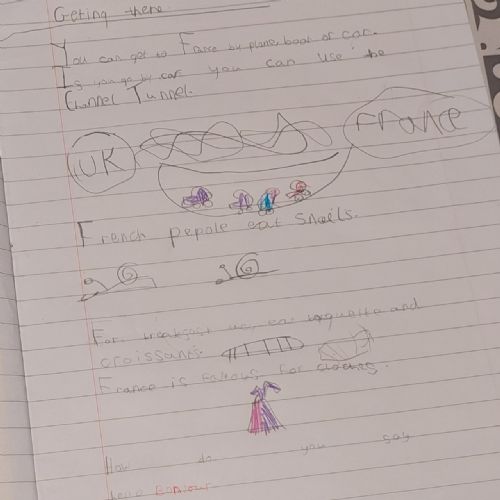 Geting there.
You can get to France by plane, boat or car.
If you go by car you can use the
Channel Tunnel.
UK
France
French pepole eat Snails.
For breakfast and
croissants.
France is for clothes.
How do you say
Bonjour